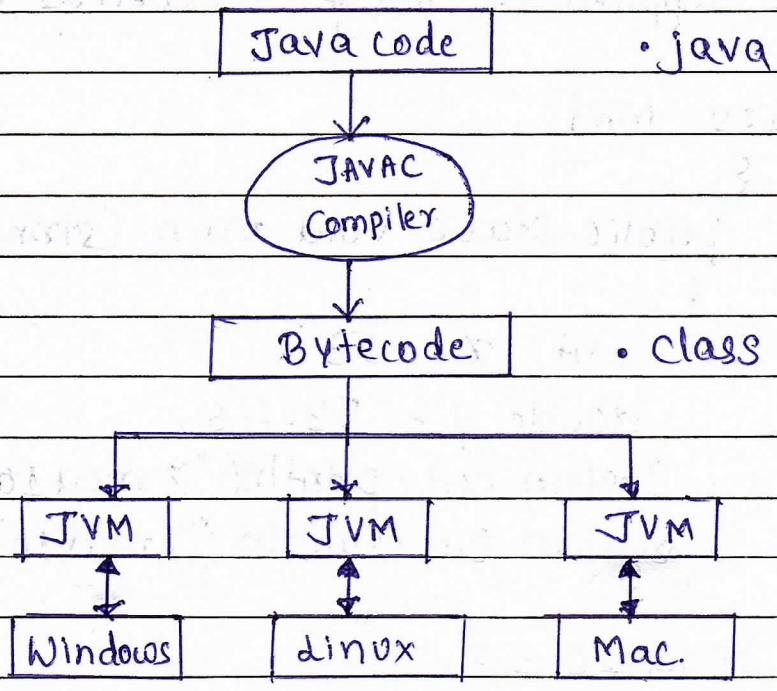 Java code .java
JAVAC
Compiler
Bytecode . class
JVM JVM JVM
Windows Linux Mac.